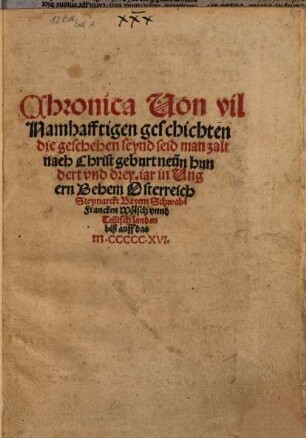 xxx
Chronica Von vil
Namhafftigen geschichten
die geschehen seynd seid man zalt
nach Christ geburt neün hun
dert vnd drey. iar in Vng
ern Behem Osterreich
Steymarckt Bayern Schwabē
Francken Wölsch vnnd
Teütsch landen
biß auff das
M.CCCCC.XVI.